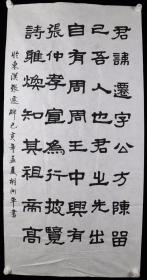 君諱遷字公方陳留
己吾人也君之先出
自有周周王中興有
張仲孝宣為行披覽
詩雅煥知其祖高
臨東漢張遷碑己亥年孟夏胡書